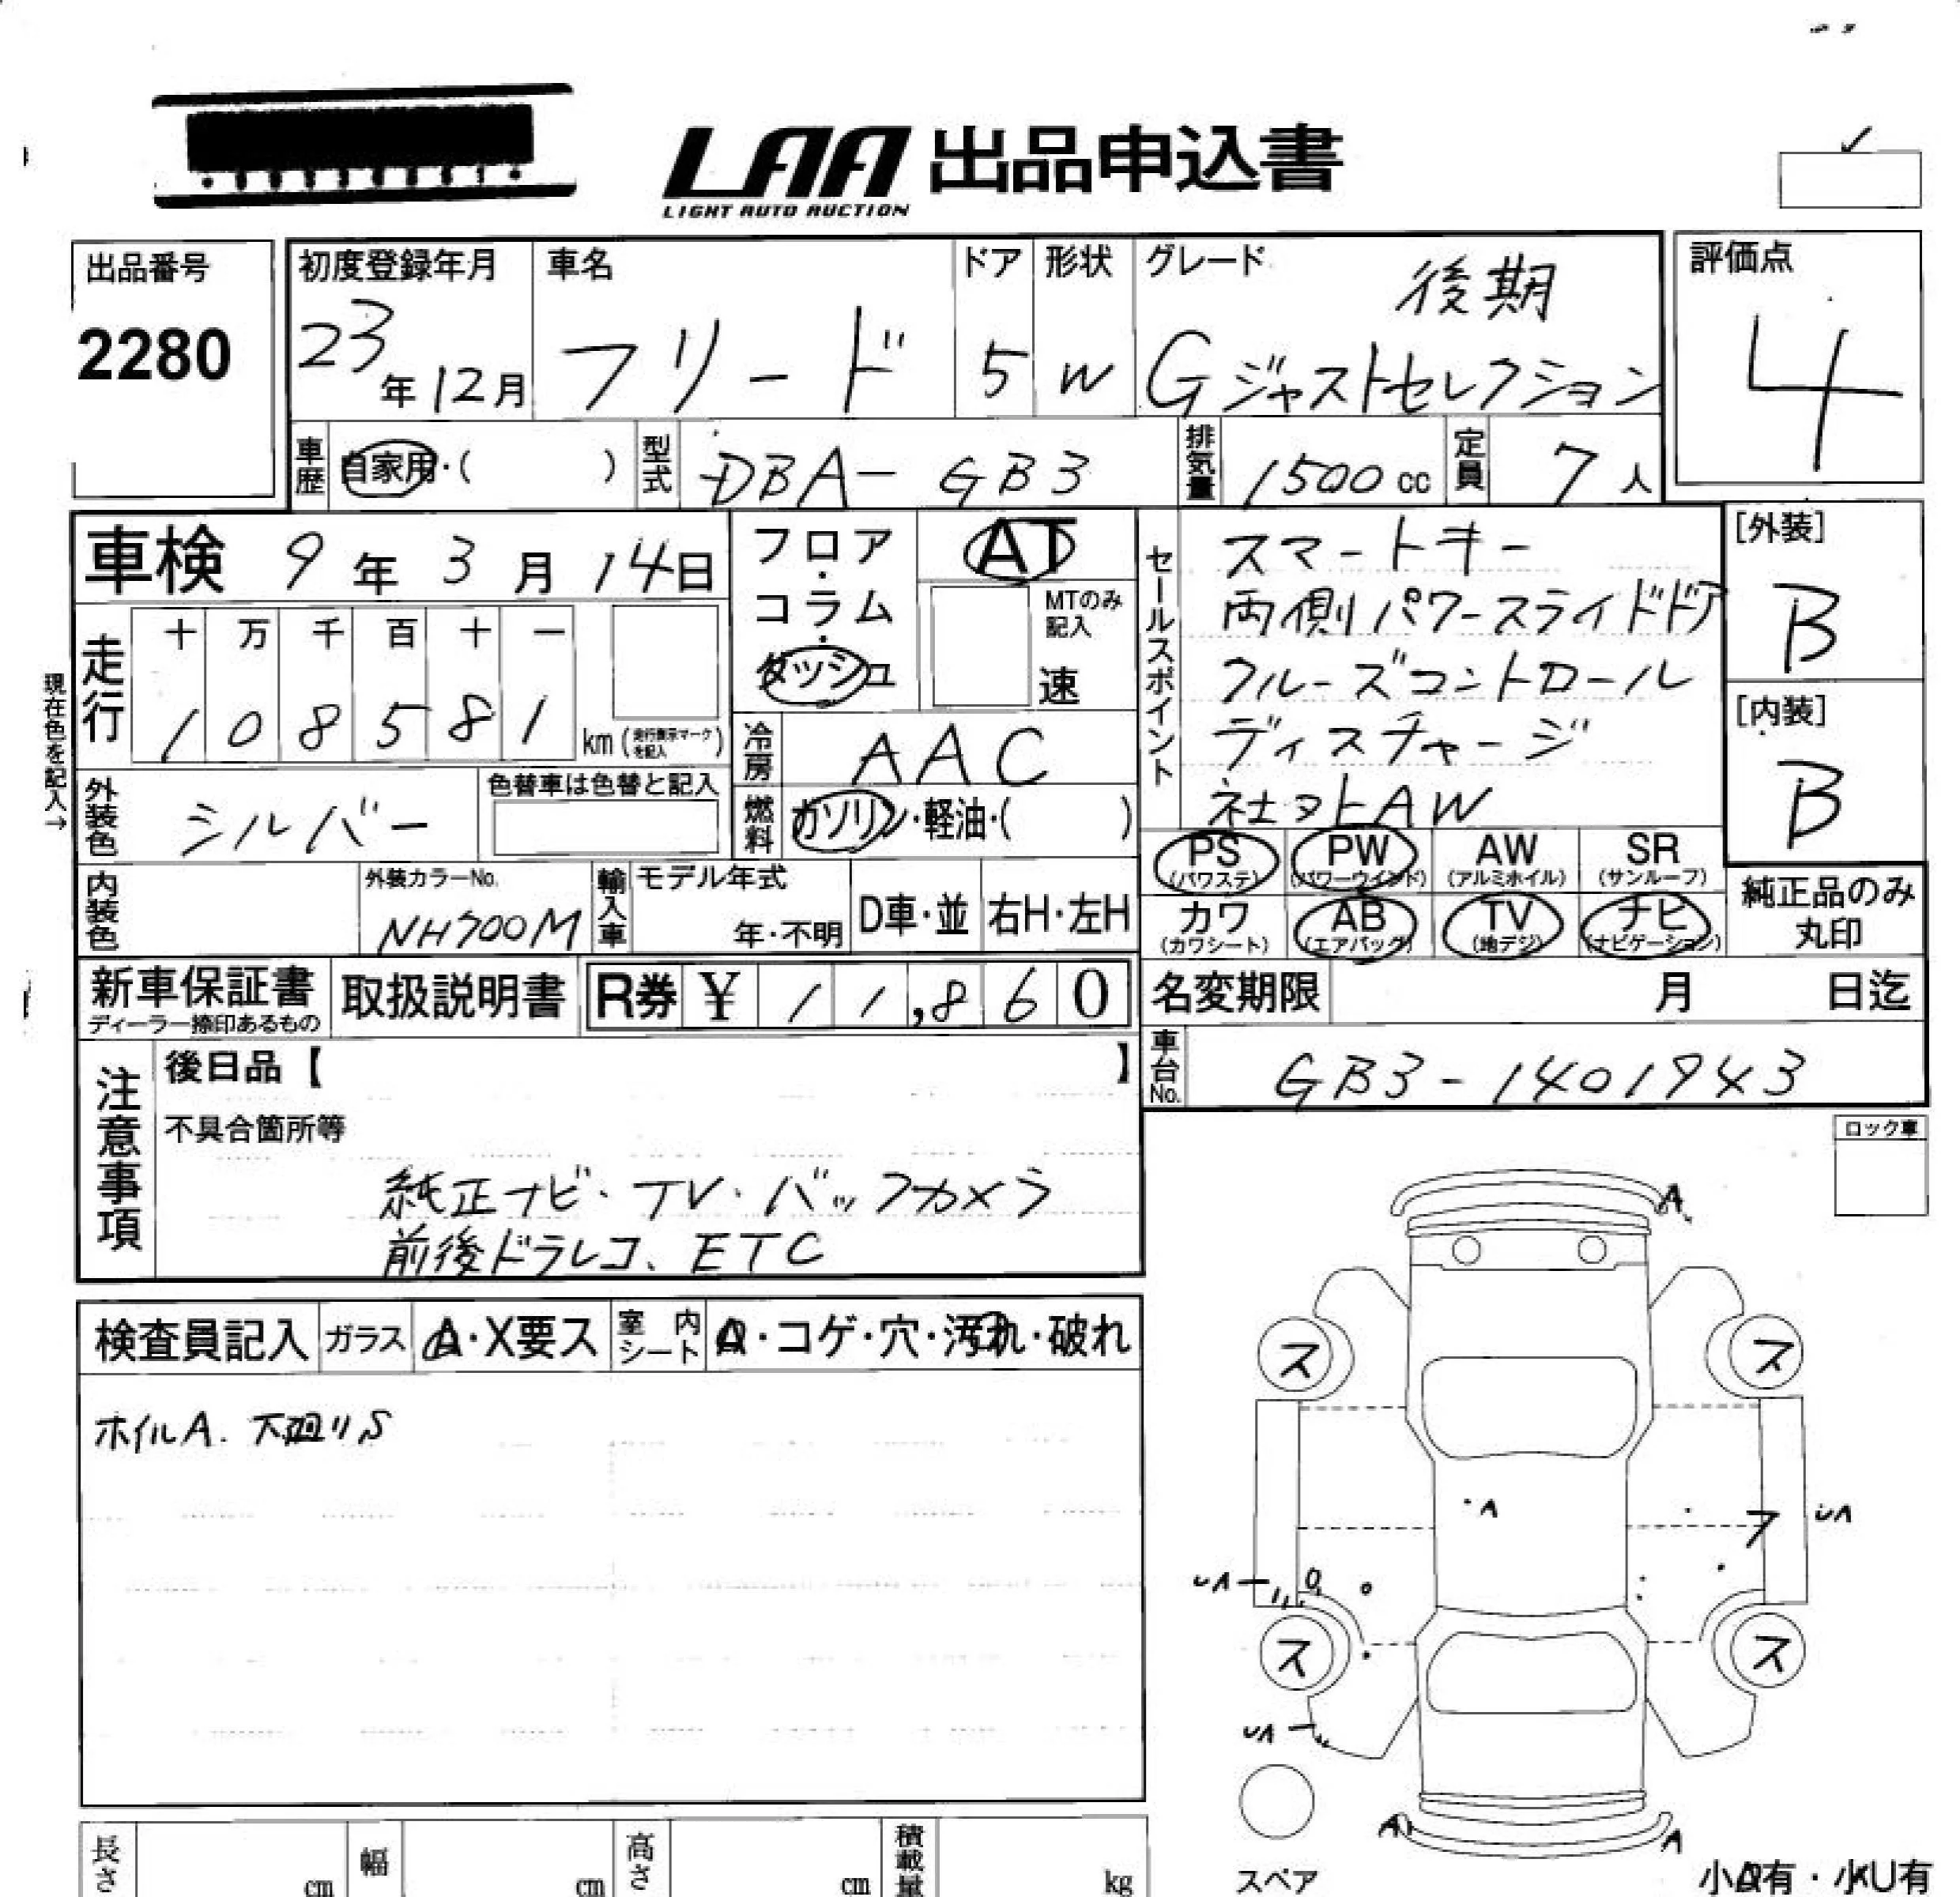 LAA 出品申込書
LIGHT AUTO AUCTION
出品番号
2280
初度登録年月
23年12月
車名
フリード
ドア
5
形状
W
グレード
後期
Gジャストセレクション
評価点
4
車歴 自家用・( )
型式 DBA-GB3
排気量 1500cc
定員 7人
車検 9年3月14日
フロア・コラム・ダッシュ
AT
MTのみ記入
速
セールスポイント
スマートキー
両側パワースライドドア
クルーズコントロール
ディスチャージ
社外AW
[外装]
B
[内装]
B
現在色を記入→
走行
十 万 千 百 十 一
1 0 8 5 8 1 km (走行表示マークを記入)
冷房 AAC
外装色 シルバー
色替車は色替と記入
燃料 ガソリン・軽油・( )
PS (パワステ)
PW (パワーウインド)
AW (アルミホイル)
SR (サンルーフ)
カワ (カワシート)
AB (エアバック)
TV (地デジ)
ナビ (ナビゲーション)
純正品のみ丸印
内装色
外装カラーNo.
NH700M
輸入車
モデル年式
年・不明
D車・並
右H・左H
新車保証書
ディーラー捺印あるもの
取扱説明書
R券 ¥ 11,860
名変期限 月 日迄
車台No. GB3-1401943
注意事項
後日品【 】
不具合箇所等
純正ナビ・TV・バックカメラ
前後ドラレコ、ETC
ロック車
検査員記入
ガラス
A・X要ス
室内シート
A・コゲ・穴・汚れ・破れ
ホイルA. 下廻りS
A
ス ス
A
フ
UA
UA
ス ス
UA
A A
スペア
小A有・小U有
長さ cm
幅 cm
高さ cm
積載量 kg